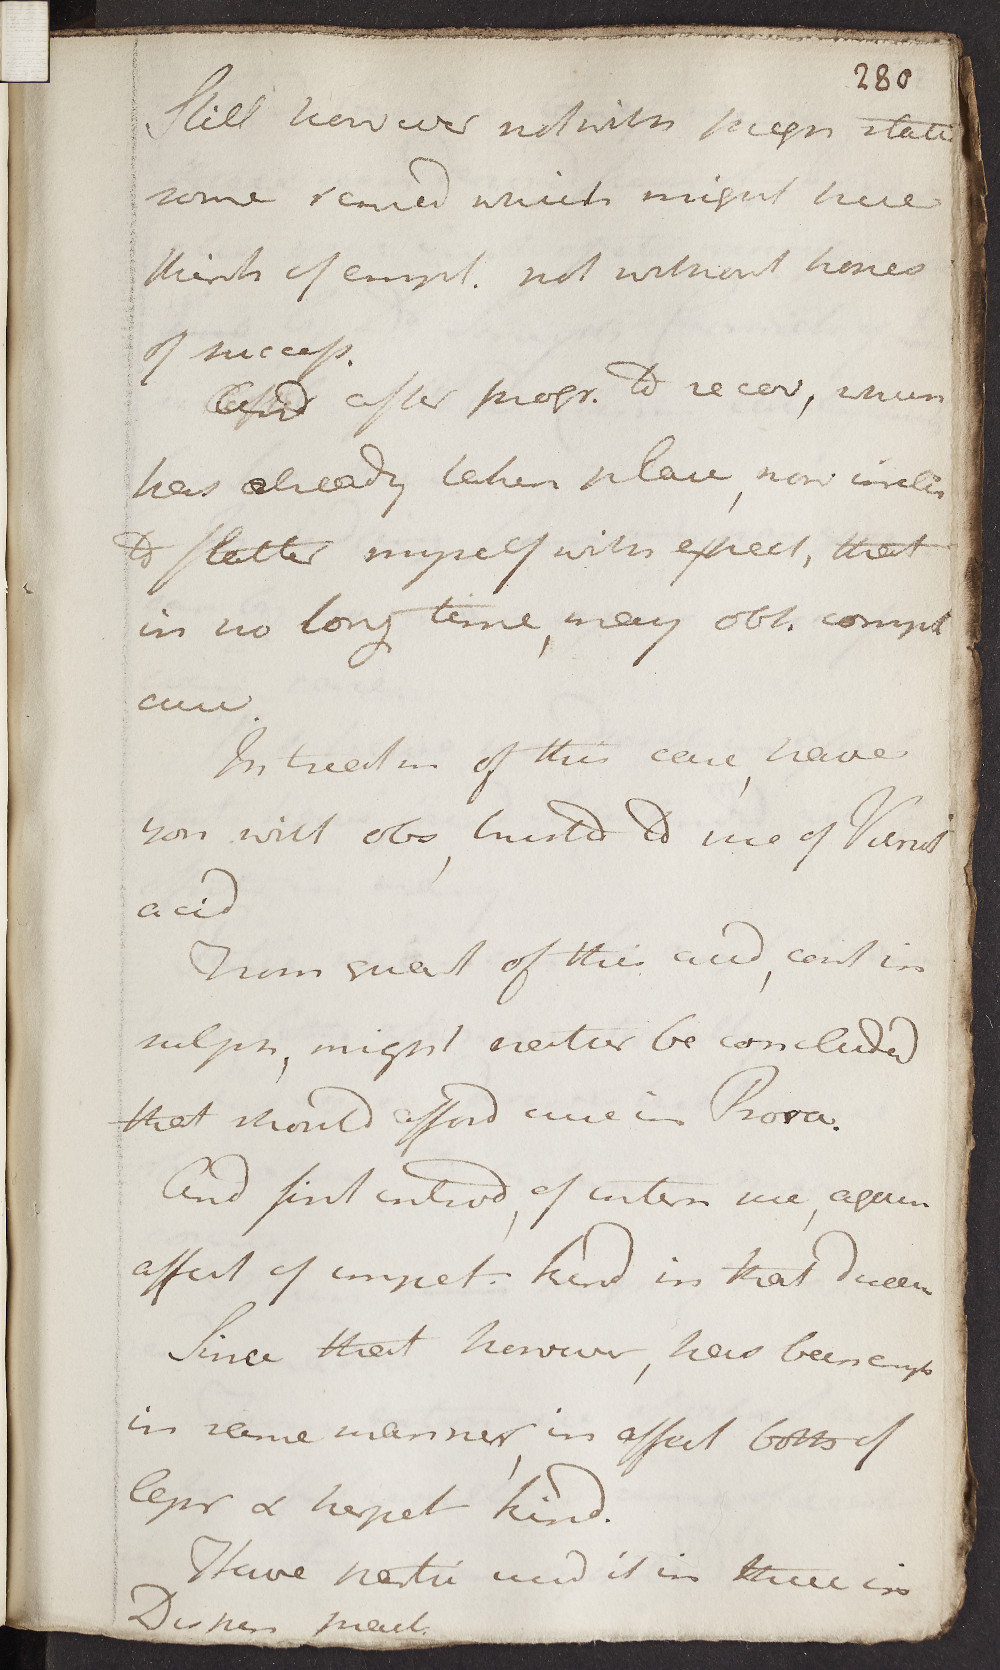 280
Still however notwith pregn state
some remed which might have
think of empl. not without hopes
of success.
And after progr. to recov, which
has already taken place, now inclin
to flatter myself with expect, that
in no long time, may obt. compl
cure.
In treatm of this case, have
you will obs, trusted to use of Vitriol
acid
From quant of this acid, cont in
sulph, might neather be concluded
that should afford cure in Psora.
And first introd, of intern use, again
affect of impet. kind in that
Since that however, has been empl
in same manner, in affect both of
lepr & herpet kind.
Have partic used it in these in
Dispen pract.